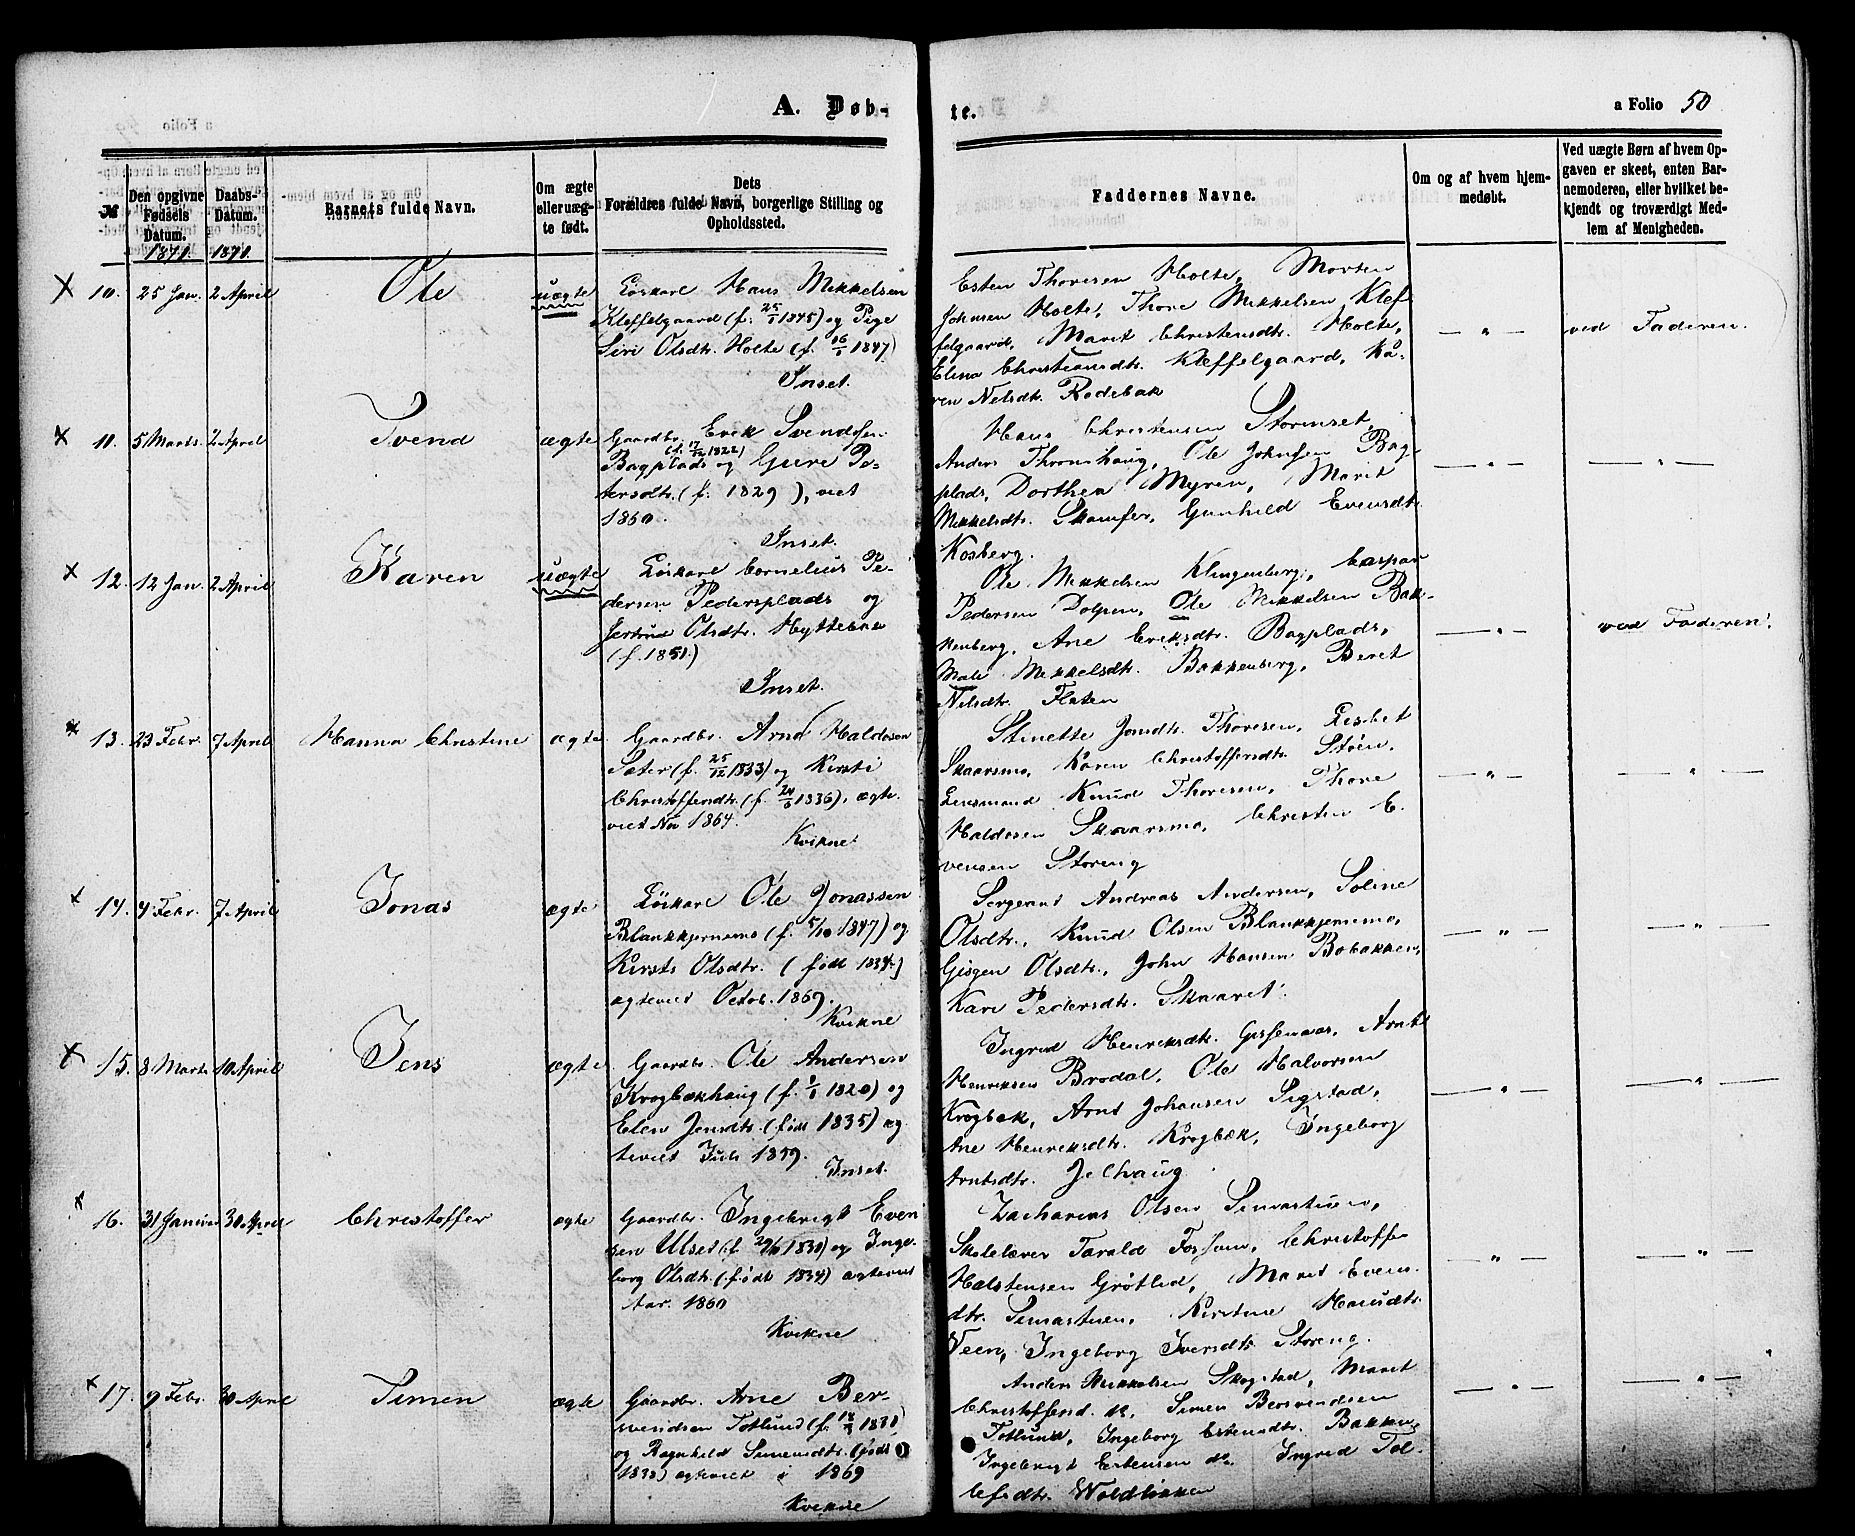 A. Døb-
te.
a Folio 50
№
Den opgivne Fødsels Datum.
1871.
Daabs-Datum.
1871.
Barnets fulde Navn.
Om ægte eller uæg-te født.
Dets
Forældres fulde Navn, borgerlige Stilling og
Opholdssted.
Faddernes Navne.
Om og af hvem hjem-
medøbt.
Ved uægte Børn af hvem Op-
gaven er skeet, enten Bar-
nemoderen, eller hvilket be-
kjendt og troværdigt Med-
lem af Menigheden.
10. 25 Jan. 2 April
Ole
uægte
Løskarl Hans Mikkelsen
Kleffelgaard (f. 1845) og Pige
Siri Olsdtr. Holte (f. 1847)
Inset.
Esten Thoresen Holte, Morten
Johnsen Holte, Thore Mikkelsen Klef
felgaard, Marit Christensdtr. Holte,
Elina Christiansdtr. Kleffelgaard, Ka-
ren Nelsdtr. Rødebak
— " —
ved Faderen.
11. 5 Marts. 2 April
Svend
ægte
Gaardbr. Erik Svendsen
(f. 17/12 1822)
Bagplads og Guri Pe-
tersdtr. (f. 1829), viet
1860.
Inset.
Hans Christensen Storinset,
Anders Thronshaug, Ole Johnsen Bag-
plads, Dorthea Myren, Marit
Mikkelsdtr. Skamfer, Gunhild Evensdtr.
Kosberg.
— " —
— " —
12. 12 Jan. 2 April
Karen
uægte
Løskarl Cornelius Pe-
dersen Pedersplads og
Jertrud Olsdtr. Hytteban
(f. 1851.)
Inset.
Ole Mikkelsen Klingenberg, Caspar
Pedersen Dolpen, Ole Mikkelsen Bak-
kenberg, Ane Eriksdtr. Bagplads,
Male Mikkelsdtr. Bakkenberg, Beret
Nilsdtr. Flaten
— " —
ved Faderen.
13. 23 Febr. 7 April
Hanna Christine
ægte
Gaardbr. Arnd Haldosen
Sæter (f. 25/12 1833) og Kirsti
Christoffersdtr. (f. 24/6 1836), ægte.
viet Nov 1864.
Kvikne
Stinette Jonsdtr. Thoresen, Lisbet
Skaarsmo, Karen Christoffersdtr. Støen,
Lensmand Knud Thoresen, Thore
Haldosen Skaarsmo, Christen E-
vensen Storeng
— " —
— " —
14. 4 Febr. 7 April
Jonas
ægte
Løskarl Ole Jonassen
Blankkjernsmo (f. 5/10 1847) og
Kirsti Olsdtr. (født 1834)
ægteviet Octob. 1869.
Kvikne
Sergeant Andreas Andersen, Soline
Olsdtr., Knud Olsen Blankkjernsmo,
Gisgen Olsdtr., John Hansen Bobakken,
Kari Pedersdtr. Skaaret.
— " —
— " —
15. 8 Marts 10 April
Jens
ægte
Gaardbr. Ole Andersen
Krogbækhaug (f. 1820) og
Elen Jensdtr. (født 1835) æg-
teviet Juli 1859.
Inset.
Ingrid Henriksdtr. Gissenaas, Arnt
Henriksen Brodal, Ole Halvorsen
Krogbak, Arnt Johansen Sigstad,
Ane Henriksdtr. Krogbæk, Ingeborg
Arntsdtr. Jelhaug
— " —
— " —
16. 31 Januar 30 April
Christoffer
ægte
Gaardbr. Ingebrigt Even
sen Ulset (f. 1830) og Inge-
borg Olsdtr. (født 1834) ægteviet
1860
Kvikne
Zacharias Olsen Simastuen,
Skolelærer Tarald Fossem, Christoffer
Halstensen Grøtlid, Marit Evens-
dtr. Simastuen, Kirstine Hansdtr.
Veen, Ingeborg Iversdtr. Storeng
— " —
— " —
17. 9 Febr. 30 April
Simen
ægte
Gaardbr. Arne Ber-
svendsen Totlund (f. 1831)
og Ragnhild Simensdtr. (født
1838) ægteviet i 1869
Kvikne
Anders Mikkelsen Skogstad, Marit
Christoffersd. Simen Bersvendsen
Totlund, Ingeborg Estensdtr. Bakken
Ingebrigt Estensen do, Ingrid Tol-
lefsdtr. Woldbakken
— " —
— " —